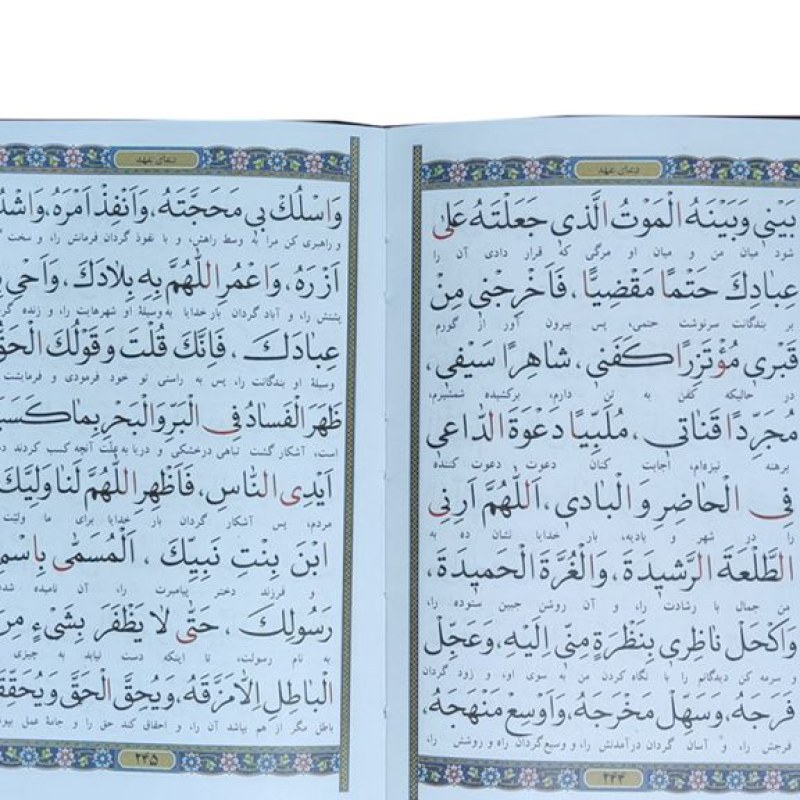 دعای عهد
بَيْنی وَبَيْنَهُ الْمَوْتُ الَّذی جَعَلْتَهُ عَلیٰ
شود میان من و میان او مرگی که قرار دادی آن را
عِبادِكَ حَتْمًا مَقْضِيًّا، فَاَخْرِجْنی مِنْ
بر بندگانت سرنوشت حتمی، پس بیرون آور از گورم
قَبْری مُؤْتَزِرًا كَفَنی، شاهِرًا سَيْفی،
در حالیکه کفن به تن دارم، برکشیده شمشیرم،
مُجَرِّدًا قَناتی، مُلَبِّيًا دَعْوَةَ الدّاعی
برهنه نیزه‌ام، اجابت کنان دعوت دعوت کننده
فِی الْحاضِرِ وَ الْبادی، اَللّٰهُمَّ اَرِنِی
را در شهر و بادیه، بار خدایا نشان ده به
الطَّلْعَةَ الرَّشیدَةَ، وَالْغُرَّةَ الْحَمیدَةَ،
من جمال با رشادت را، و آن روشن جبین ستوده را،
وَاكْحَلْ ناظِری بِنَظْرَةٍ مِنّی اِلَيْهِ، وَعَجِّلْ
و سرمه کن دیدگانم را با نگاه کردن من به سوی او، و زود گردان
فَرَجَهُ، وَسَهِّلْ مَخْرَجَهُ، وَاَوْسِعْ مَنْهَجَهُ،
فرجش را، و آسان گردان درآمدنش را، و وسیع گردان راه و روشش را،
۲۴۴
دعای عهد
وَاسْلُكْ بی مَحَجَّتَهُ، وَاَنْفِذْ اَمْرَهُ، وَاشْدُ
و راهبری کن مرا به وسط راهش، و با نفوذ گردان فرمانش را، و سخت
اَزْرَهُ، وَاعْمُرِ اللّٰهُمَّ بِهِ بِلادَكَ، وَاَحْیِ
پشتش را، و آباد گردان بار خدایا به وسیلهٔ او شهرهایت را، و زنده
عِبادَكَ، فَاِنَّكَ قُلْتَ وَقَوْلُكَ الْحَقُّ
وسیلهٔ او بندگانت را، پس به راستی تو خود فرمودی و فرمایشت
ظَهَرَ الْفَسادُ فِی الْبَرِّ وَالْبَحْرِ بِما كَسَبَ
است، آشکار گشت تباهی درخشکی و دریا به علت آنچه کسب کردند
اَيْدِی النّاسِ، فَاَظْهِرِ اللّٰهُمَّ لَنا وَلِيَّكَ
مردم، پس آشکار گردان بار خدایا برای ما ولیّت
ابْنَ بِنْتِ نَبِيِّكَ، اَلْمُسَمّیٰ بِاسْمِ
و فرزند دختر پیامبرت را، آن نامیده شده
رَسُولِكَ، حَتّیٰ لا يَظْفَرَ بِشَیْءٍ مِنَ
به نام رسولت، تا اینکه دست نیابد به چیزی
الْباطِلِ اِلّا مَزَّقَهُ، وَيُحِقَّ الْحَقَّ وَيُحَقِّقَ
باطل مگر از هم بپاشد آن را، و احقاق کند حق را و جامهٔ عمل
۲۴۵